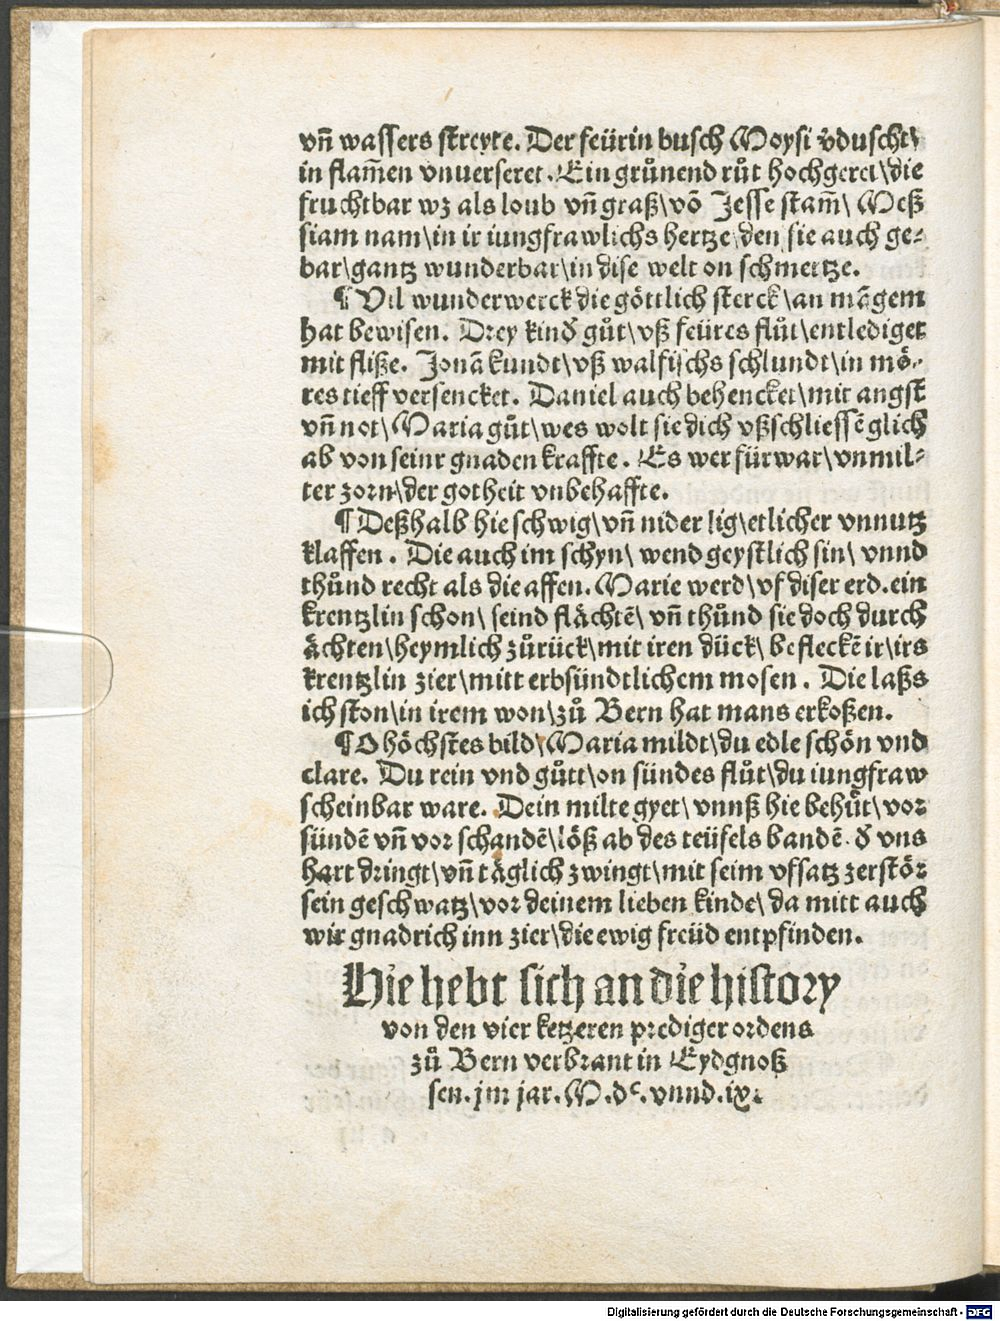 vñ wassers streyte. Der feürin busch Moysi v̊duscht\
in flam̃en vnuerseret. Ein grůnend růt hochgeret\die
fruchtbar wz als loub vñ graß\võ Jesse stam̃\ Meß
siam nam\in ir iungfrawlichs hertze\den sie auch ge⸗
bar\gantz wunderbar\in dise welt on schmertze.
¶ Vil wunderwerck die göttlich sterck\an mãgem
hat bewisen. Drey kinð gůt\vß feüres flůt\entlediget
mit fliße. Jonã kundt\vß walfischs schlundt\in mö⸗
res tieff versencket. Daniel auch behencket\mit angst
vñ not\Maria gůt\wes wolt sie dich vßschliessẽ glich
ab von seinr gnaden kraffte. Es wer fürwar\vnmil⸗
ter zorn\der gotheit vnbehaffte.
¶ Deßhalb hie schwig\vñ nider lig\etlicher vnnutz
klaffen. Die auch im schyn\ wend geystlich sin\ vnnd
thůnd recht als die affen. Marie werd\vf diser erd.ein
krentzlin schon\ seind flächtẽ\ vñ thůnd sie doch durch
ächten\heymlich zůrück\mit iren dück\ befleckẽ ir\irs
krentzlin zier\mitt erbsündtlichem mosen. Die laßs
ich ston\in irem won\zů Bern hat mans erkoßen.
¶ O höchstes bild\Maria mildt\du edle schön vnd
clare. Du rein vnd gůtt\on sündes flůt\du iungfraw
scheinbar ware. Dein milte gyet\ vnnß hie behüt\vor
sündẽ vñ vor schandẽ\löß ab des teüfels bandẽ. ð vns
hart dringt\vñ täglich zwingt\mit seim vfsatz zerstör
sein geschwatz\vor deinem lieben kinde\ da mitt auch
wir gnadrich inn zier\die ewig freüd entpfinden.
Hie hebt sich an die history
von den vier ketzeren prediger ordens
zů Bern verbrant in Eydgnoß
sen. jm jar. M.dᶜ. vnnd. ix.
Digitalisierung gefördert durch die Deutsche Forschungsgemeinschaft - DFG